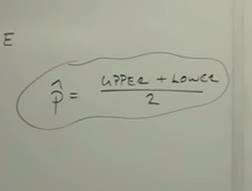 E
p̂ = UPPER + LOWER / 2